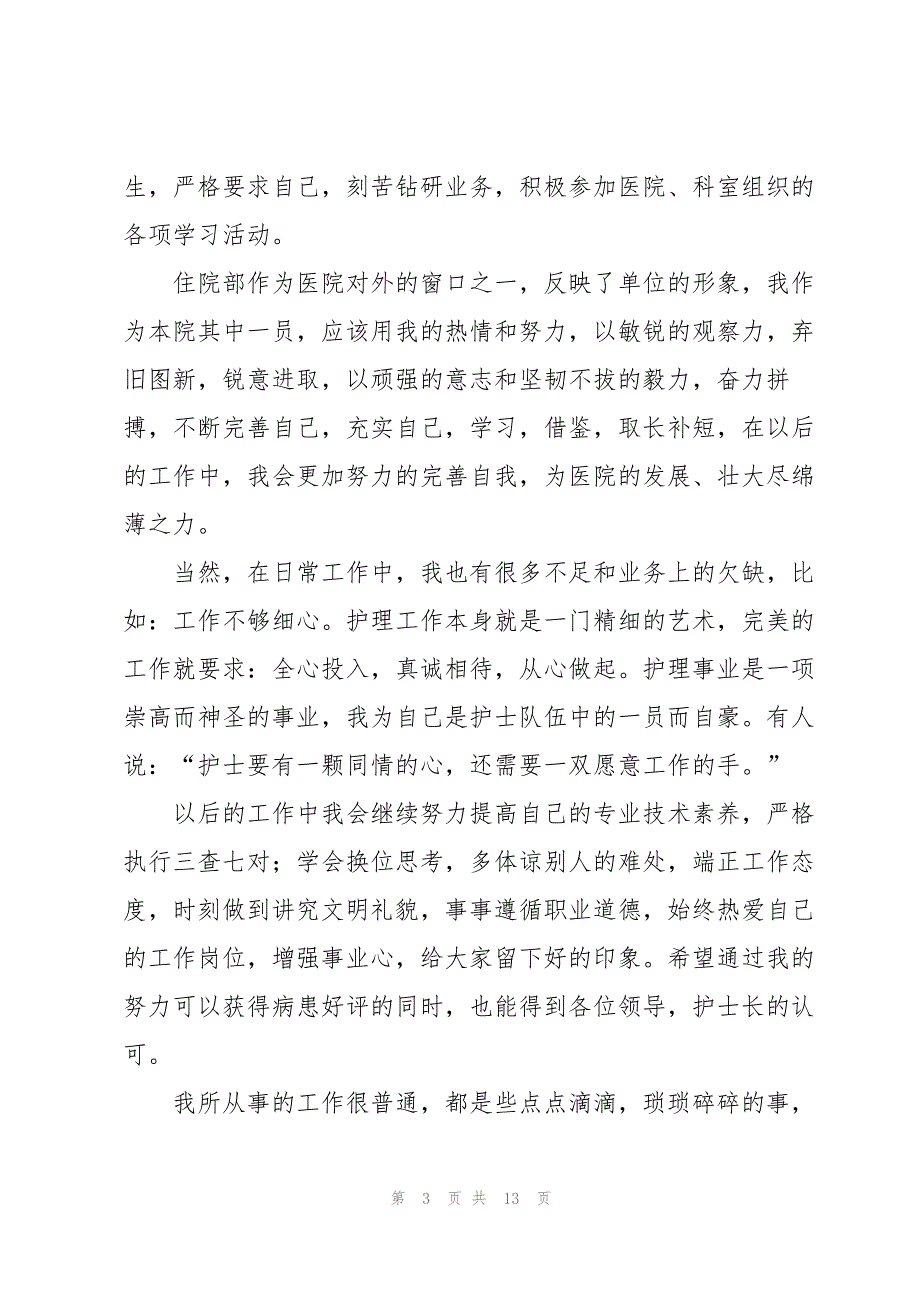 生，严格要求自己，刻苦钻研业务，积极参加医院、科室组织的
各项学习活动。
住院部作为医院对外的窗口之一，反映了单位的形象，我作
为本院其中一员，应该用我的热情和努力，以敏锐的观察力，弃
旧图新，锐意进取，以顽强的意志和坚韧不拔的毅力，奋力拼
搏，不断完善自己，充实自己，学习，借鉴，取长补短，在以后
的工作中，我会更加努力的完善自我，为医院的发展、壮大尽绵
薄之力。
当然，在日常工作中，我也有很多不足和业务上的欠缺，比
如：工作不够细心。护理工作本身就是一门精细的艺术，完美的
工作就要求：全心投入，真诚相待，从心做起。护理事业是一项
崇高而神圣的事业，我为自己是护士队伍中的一员而自豪。有人
说：“护士要有一颗同情的心，还需要一双愿意工作的手。”
以后的工作中我会继续努力提高自己的专业技术素养，严格
执行三查七对；学会换位思考，多体谅别人的难处，端正工作态
度，时刻做到讲究文明礼貌，事事遵循职业道德，始终热爱自己
的工作岗位，增强事业心，给大家留下好的印象。希望通过我的
努力可以获得病患好评的同时，也能得到各位领导，护士长的认
可。
我所从事的工作很普通，都是些点点滴滴，琐琐碎碎的事，
第 3 页 共 13 页